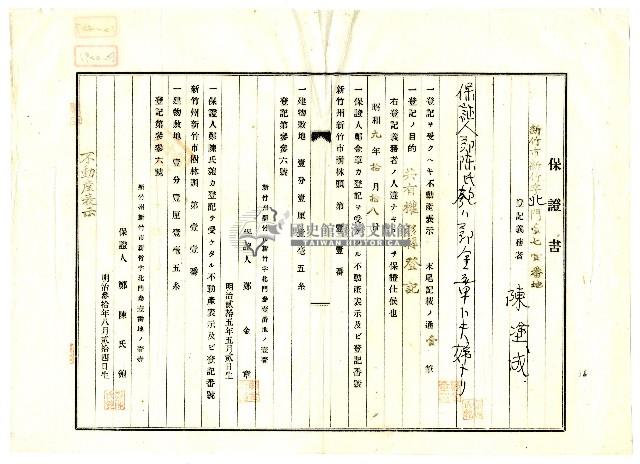 保證書
新竹市新竹字北門 七 番地
登記義務者
陳塗成
保証人鄭陳氏 ハ鄭金章ト夫婦ナリ
一登記ヲ受クヘキ不動産表示 末尾記載ノ通 壹筆
一登記ノ目的 所有權移轉登記
右登記義務者ノ人違ナキコトヲ保證仕候也
昭和九年拾月拾八日
一保證人鄭金章カ登記ヲ受ケタル不動產表示及ビ登記番號
新竹州新竹市樹林頭 第壹壹番
一建物敷地 壹分壹厘壹毫五糸
登記第參參六號
新竹州新竹市新竹字北門參壹番地ノ壹壹
保證人 鄭金章
明治貳拾五年五月貳日生
一保證人鄭陳氏 カ登記ヲ受ケタル不動產表示及ビ登記番號
新竹州新竹市樹林頭 第壹壹番
一建物敷地 壹分壹厘壹毫五糸
登記第參參六號
新竹州新竹市新竹字北門參壹番地ノ壹壹
保證人 鄭陳氏
明治參拾年八月貳拾四日生
不動産表示
國史館臺灣文獻館
TAIWAN HISTORICA